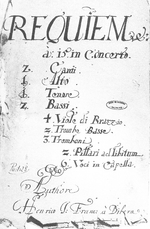 REQUIEM
à 15 in Concerto.
2. Canti
1. Alto
1. Tenore
2. Bassi
4 Viole di Brazzo
2 Trombe Basse
3 Tromboni
2 Piffari ad libitum
6 Voci in Capella
Authore
Henrico I. Franc: à Bibern